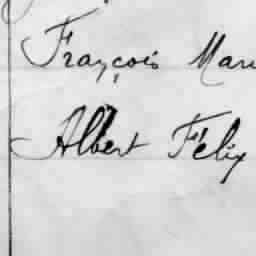 François Mari
Albert Félix